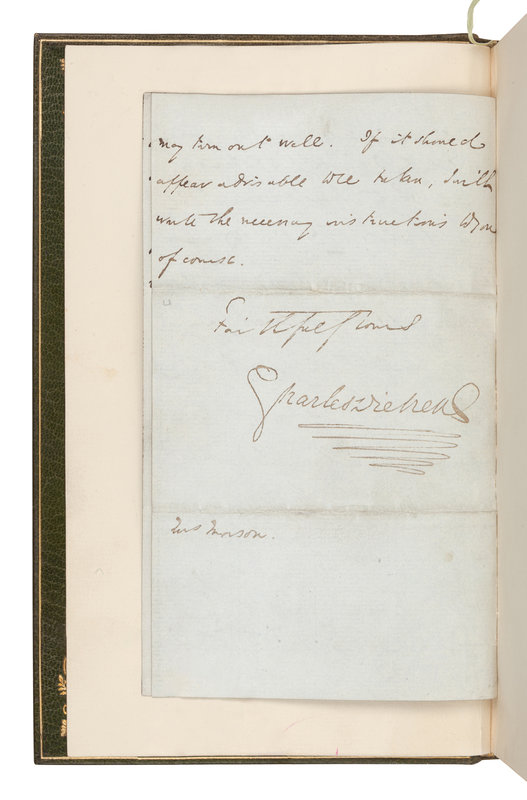 may turn out well. If it should
appear advisable to be taken, I will
write the necessary instructions to you
of course.
Faithfully Yours
Charles Dickens
Mrs Morson.